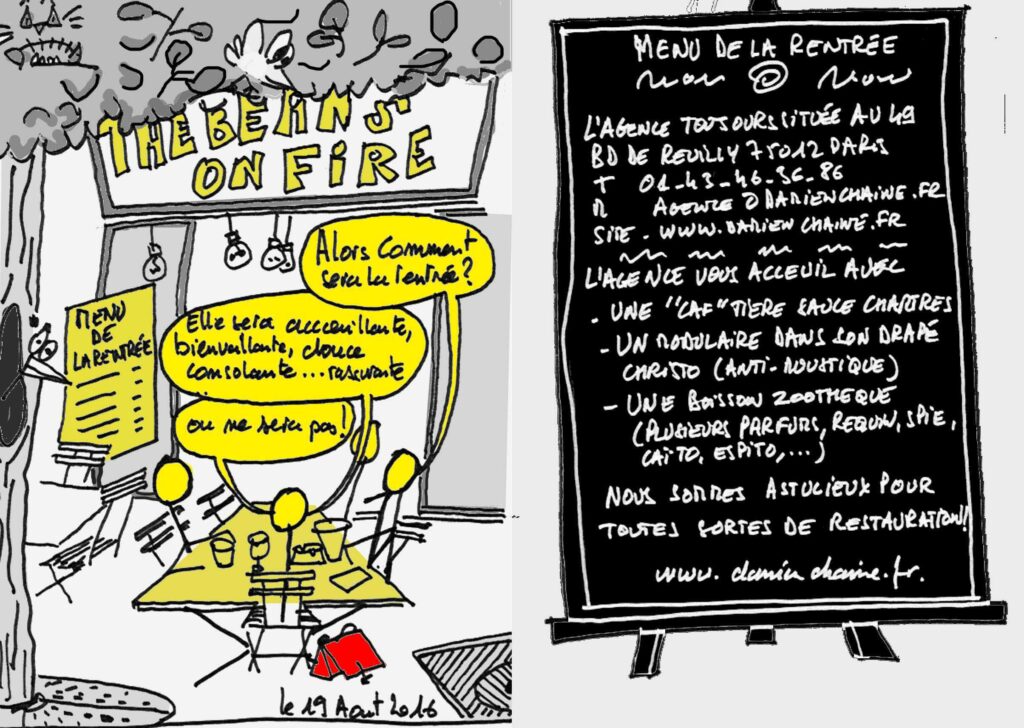 THE BEANS
ON FIRE
Alors comment
sera la rentrée?
Elle sera accueillante,
bienveillante, douce
consolante... rassurante
ou ne sera pas!
MENU
DE
LA RENTRÉE
le 19 Aout 2016
MENU DE LA RENTRÉE
L'AGENCE TOUJOURS SITUÉE AU 49
BD DE REUILLY 75012 PARIS
T 01_43_46_36_86
M AGENCE@DAMIENCHAINE.FR
SITE - WWW.DAMIENCHAINE.FR
L'AGENCE VOUS ACCEUIL AVEC
- UNE "CAF"TIERE SAUCE CHARTRES
- UN MODULAIRE DANS SON DRAPÉ
CHRISTO (ANTI-MOUSTIQUE)
- UNE BOISSON ZOOTHEQUE
(PLUSIEURS PARFUMS, REQUIN, SPIE,
CAÏTO, ESPITO,...)
NOUS SOMMES ASTUCIEUX POUR
TOUTES SORTES DE RESTAURATION!
www.damienchaine.fr.